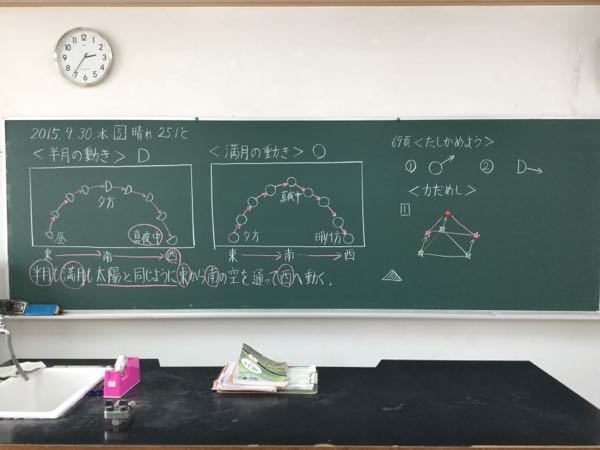 2015.9.30.水 5 晴れ 25.1℃
<半月の動き>
昼
夕方
真夜中
東 → 南 → 西
<満月の動き>
夕方
真夜中
明け方
東 → 南 → 西
半月も満月も太陽と同じように東から南の空を通って西へ動く。
69頁<たしかめよう>
①
②
<力だめし>
1